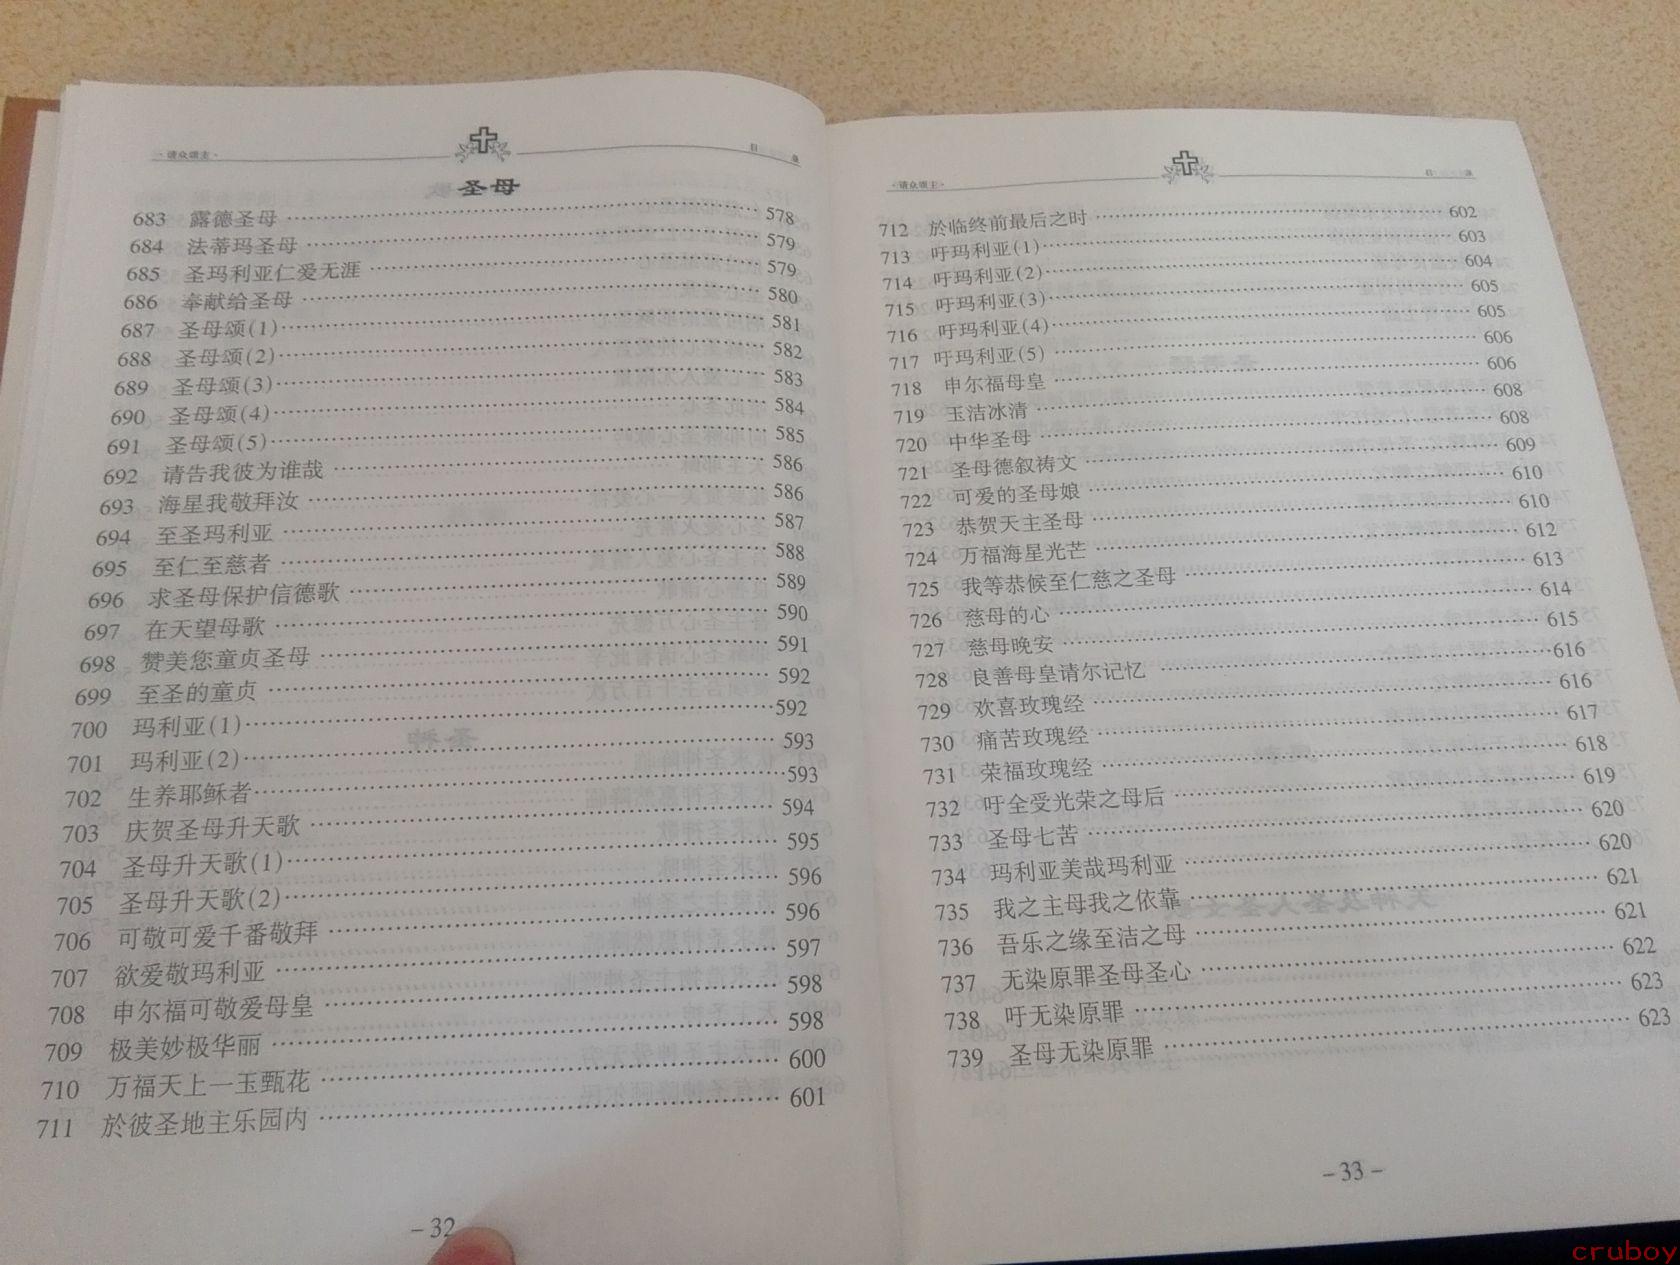 ·请众颂主·
目 录
圣母
683 露德圣母 578
684 法蒂玛圣母 579
685 圣玛利亚仁爱无涯 579
686 奉献给圣母 580
687 圣母颂(1) 581
688 圣母颂(2) 582
689 圣母颂(3) 583
690 圣母颂(4) 584
691 圣母颂(5) 585
692 请告我彼为谁哉 586
693 海星我敬拜汝 586
694 至圣玛利亚 587
695 至仁至慈者 588
696 求圣母保护信德歌 589
697 在天望母歌 590
698 赞美您童贞圣母 591
699 至圣的童贞 592
700 玛利亚(1) 592
701 玛利亚(2) 593
702 生养耶稣者 593
703 庆贺圣母升天歌 594
704 圣母升天歌(1) 595
705 圣母升天歌(2) 596
706 可敬可爱千番敬拜 596
707 欲爱敬玛利亚 597
708 申尔福可敬爱母皇 598
709 极美妙极华丽 598
710 万福天上一玉甄花 600
711 於彼圣地主乐园内 601
– 32
·请众颂主·
目 录
712 於临终前最后之时 602
713 吁玛利亚(1) 603
714 吁玛利亚(2) 604
715 吁玛利亚(3) 605
716 吁玛利亚(4) 605
717 吁玛利亚(5) 606
718 申尔福母皇 606
719 玉洁冰清 608
720 中华圣母 608
721 圣母德叙祷文 609
722 可爱的圣母娘 610
723 恭贺天主圣母 610
724 万福海星光芒 612
725 我等恭候至仁慈之圣母 613
726 慈母的心 614
727 慈母晚安 615
728 良善母皇请尔记忆 616
729 欢喜玫瑰经 616
730 痛苦玫瑰经 617
731 荣福玫瑰经 618
732 吁全受光荣之母后 619
733 圣母七苦 620
734 玛利亚美哉玛利亚 620
735 我之主母我之依靠 621
736 吾乐之缘至洁之母 621
737 无染原罪圣母圣心 622
738 吁无染原罪 623
739 圣母无染原罪 623
– 33 –
cruboy